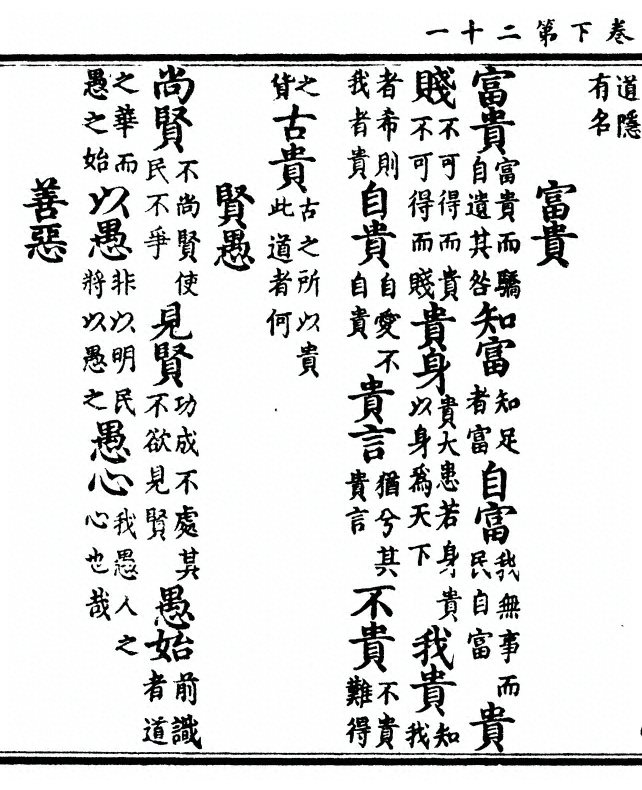 卷下第二十一
道隱有名
富貴
富貴富貴而驕自遺其咎知富知足者富自富我無事而民自富貴
賤不可得而貴不可得而賤貴身貴大患若身貴以身爲天下我貴知我
者希則我者貴自貴自愛不自貴貴言猶兮其貴言不貴不貴難得
之貨古貴古之所以貴此道者何
賢愚
尚賢不尚賢使民不爭見賢功成不處其不欲見賢愚始前識者道
之華而愚之始以愚非以明民將以愚之愚心我愚人之心也哉
善惡